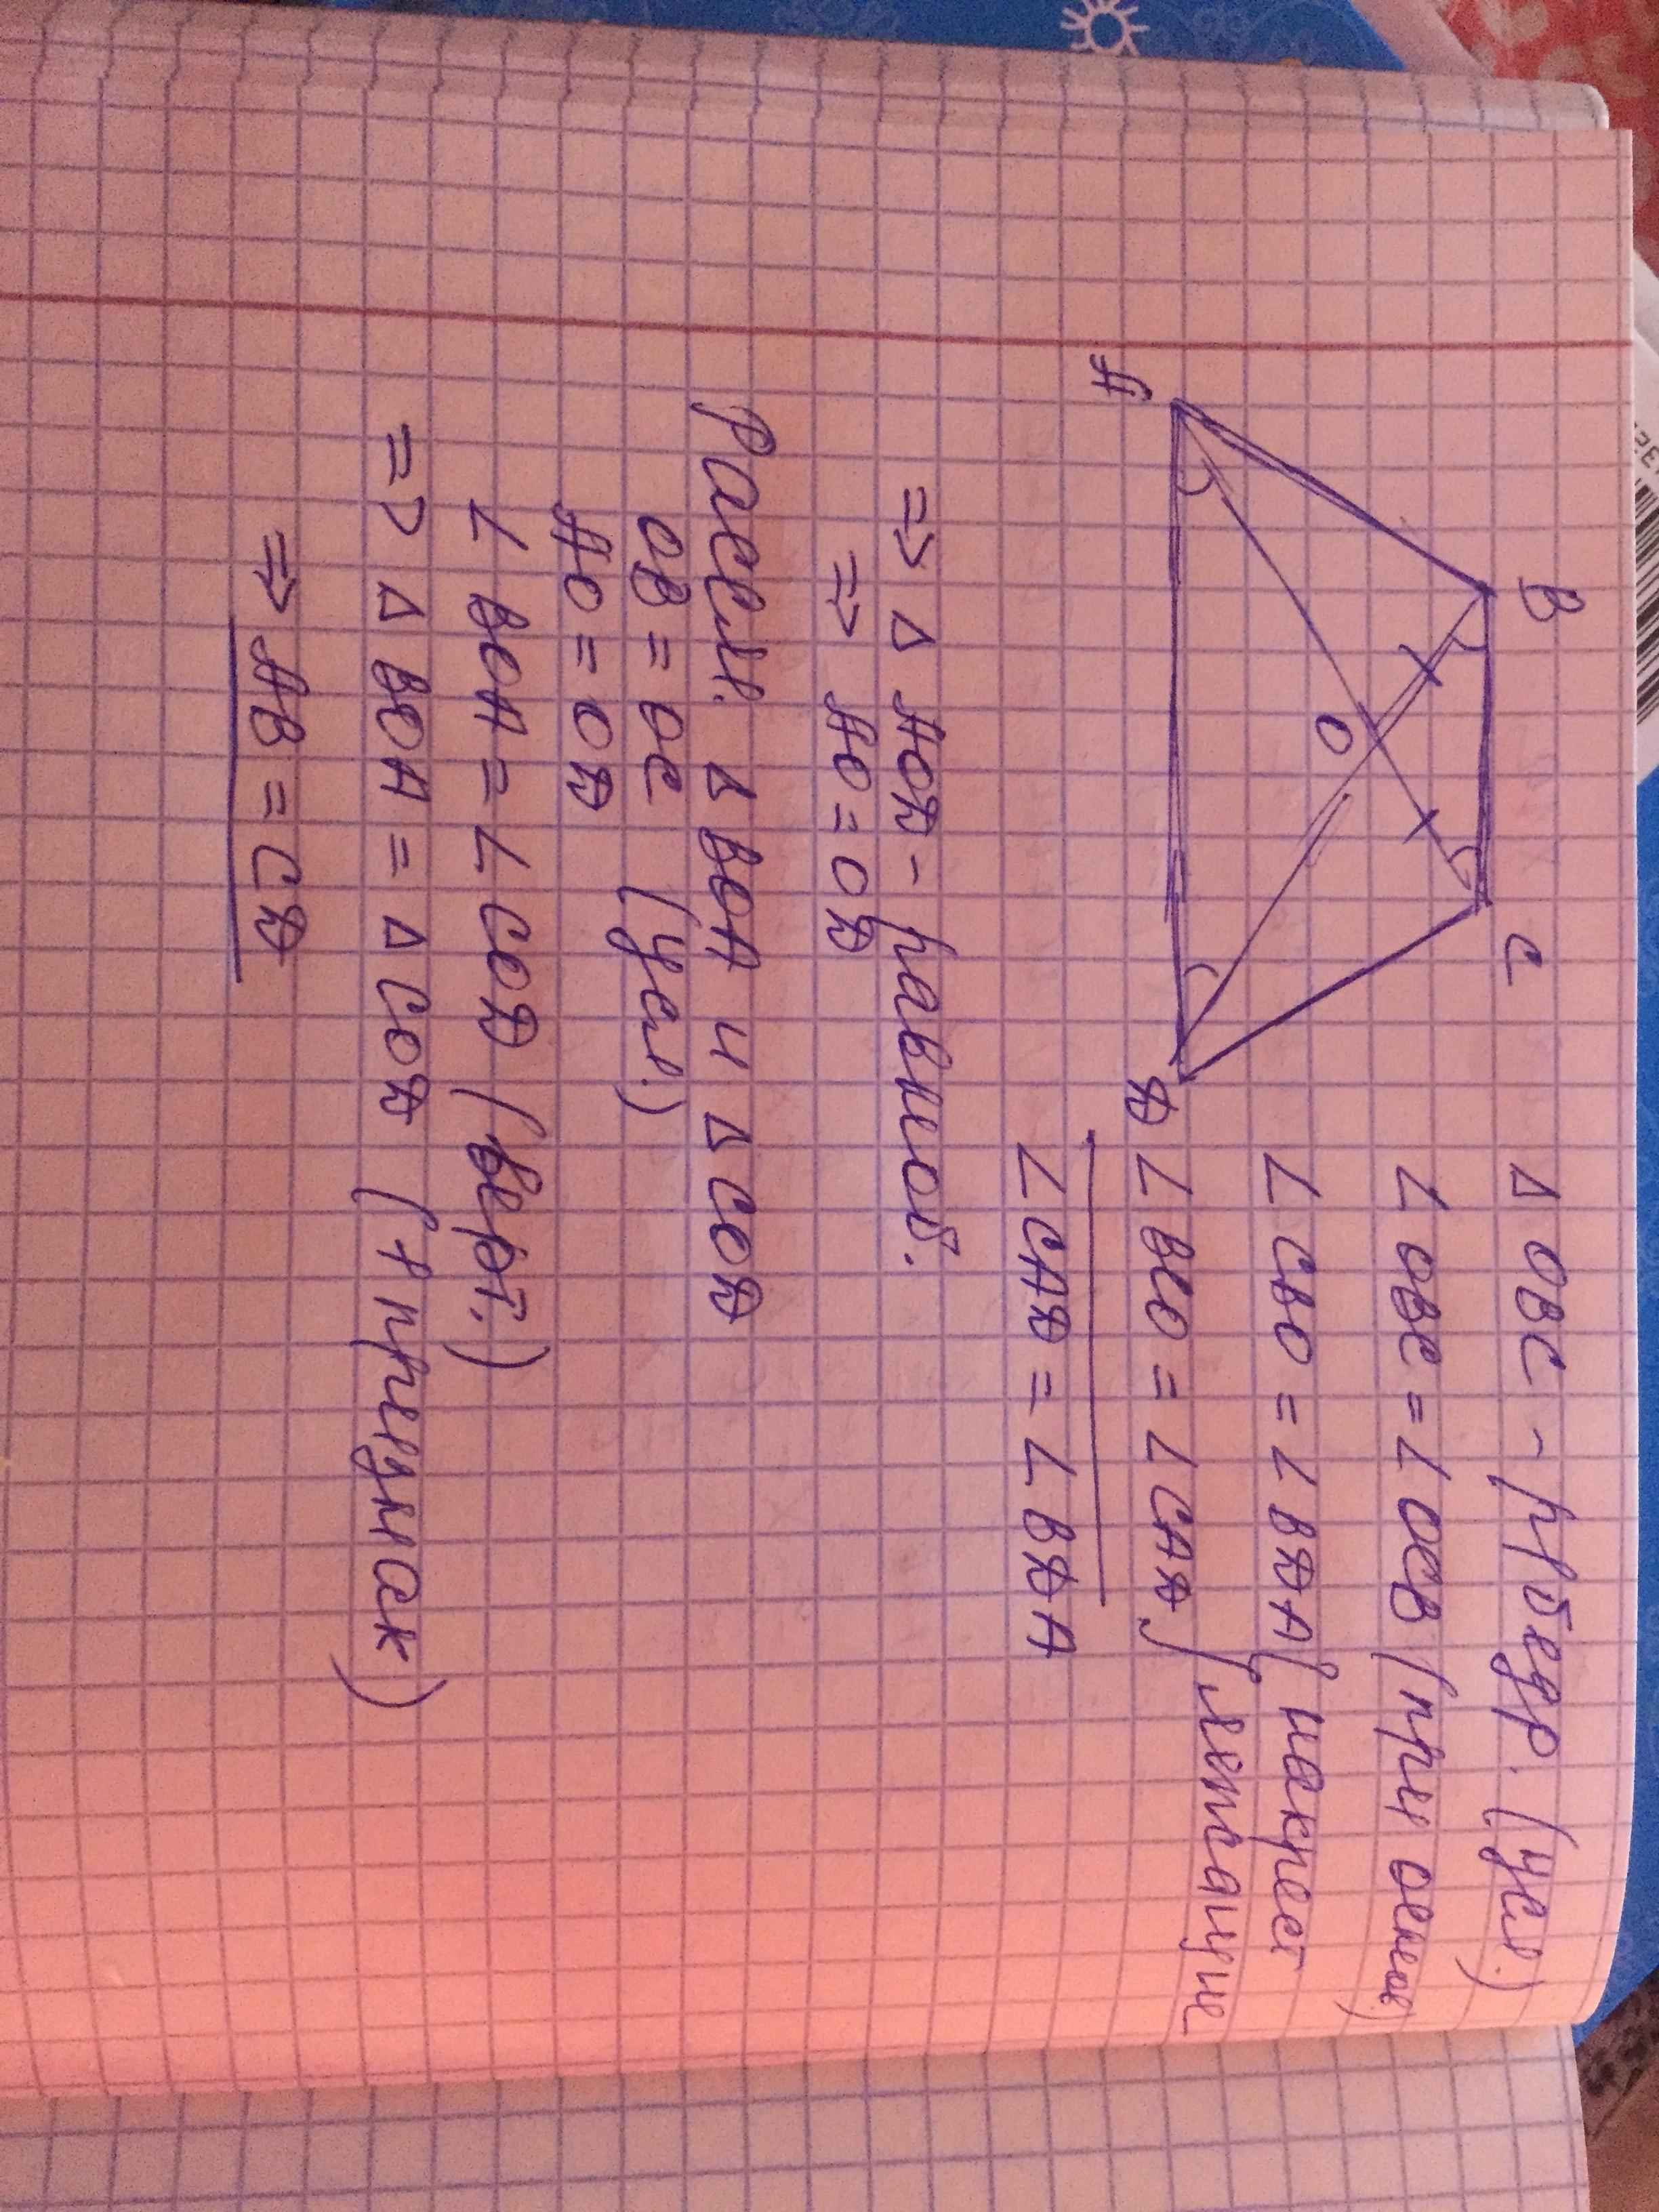 B
C
O
A
D
Δ OBC - р/бедр. (усл.)
∠ OBC = ∠ OCB (при основ)
∠ CBO = ∠ BDA } накрест
∠ BCO = ∠ CAD } лежащие
∠ CAD = ∠ BDA
=> Δ AOD - равноб.
=> AO = OD
Рассм. Δ BOA и Δ COD
OB = OC (усл.)
AO = OD
∠ BOA = ∠ COD (верт.)
=> Δ BOA = Δ COD (1 признак)
=> AB = CD